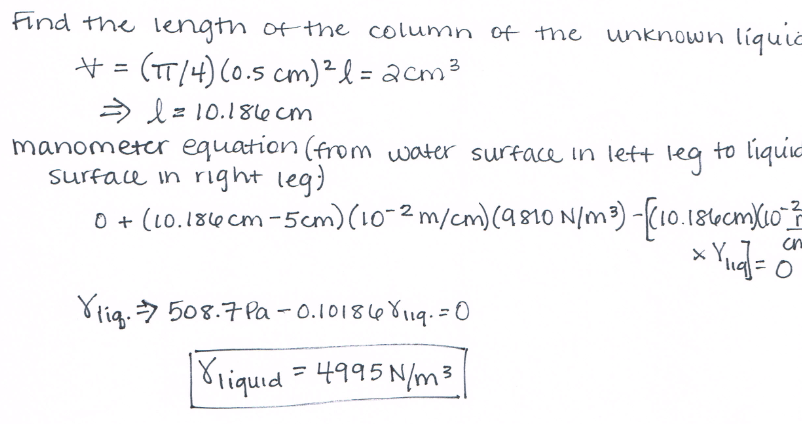 Find the length of the column of the unknown liquid
V = (π/4)(0.5 cm)² l = 2cm³
⇒ l = 10.186cm
manometer equation (from water surface in left leg to liquid
surface in right leg:)
0 + (10.186cm - 5cm)(10⁻² m/cm)(9810 N/m³) - [(10.186cm)(10⁻²
× γliq] = 0
γliq. ⇒ 508.7 Pa - 0.10186 γliq. = 0
γliquid = 4995 N/m³